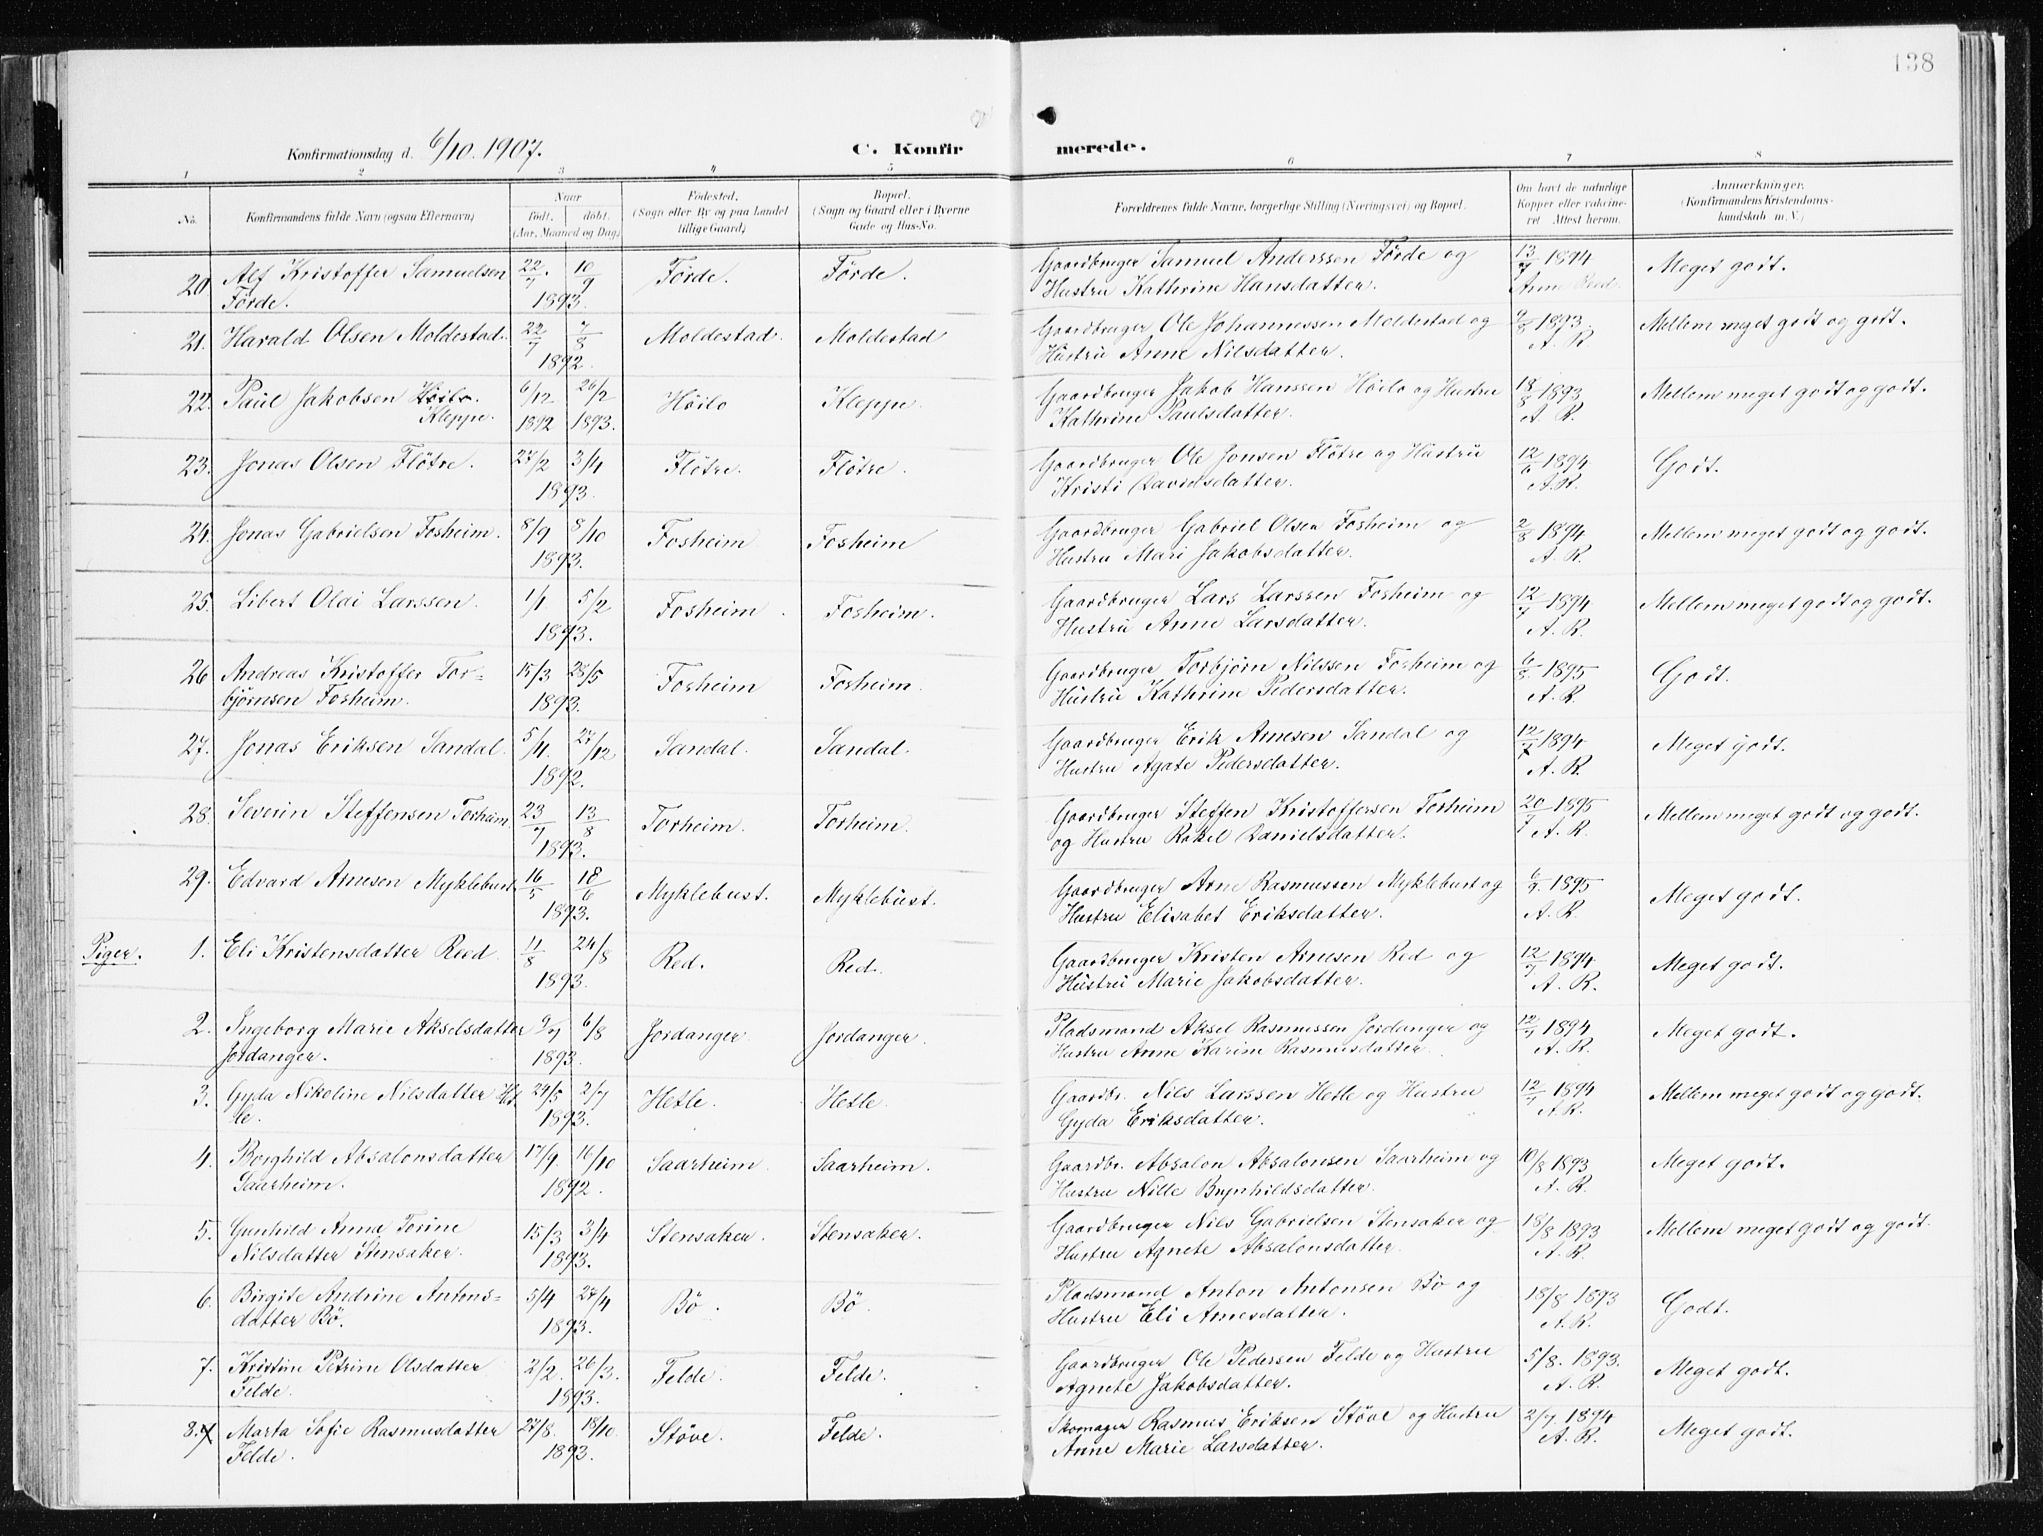 138
Konfirmationsdag d. 6/10. 1907.
C. Konfirmerede.
1 2 3 4 5 6 7 8
No. Konfirmandens fulde Navn (ogsaa Efternavn) Naar født. døbt. (Aar, Maaned og Dag) Fødested. (Sogn eller By og paa Landet tillige Gaard) Bopæl. (Sogn og Gaard eller i Byerne Gade og Hus-No. Forældrenes fulde Navne, borgerlige Stilling (Næringsvei) og Bopæl. Om havt de naturlige Kopper eller vaccineret Attest herom. Anmærkninger. (Konfirmandens Kristendomskundskab m. V.)
20. Alf Kristoffer Samuelsen 22/7. 10/9 Förde. Förde. Gaardbruger Samuel Anderssen Förde og 13/7 1894 Meget godt.
Förde. 1893. Hustru Kathrine Hansdatter. Arne Reed.
21. Harald Olsen Moldestad. 22/7 7/8 Moldestad. Moldestad Gaardbruger Ole Johannessen Moldestad og 9/8 1893. Mellem meget godt og godt.
1892. Hustru Anne Nilsdatter. A. R
22. Paul Jakobsen Høilo. 6/12 26/2 Høilo Kleppe. Gaardbruger Jakob Hanssen Høilo og Hustru 18/8 1893 Mellem meget godt og godt.
Kleppe. 1892 1893. Kathrine Paulsdatter. A. R.
23. Jonas Olsen Flötre. 27/2 3/4 Flötre. Flötre. Gaardbruger Ole Jonsen Flötre og Hustru 12/6 1894 Godt.
1893. Kristi Davidsdatter. A.R.
24. Jonas Gabrielsen Fosheim. 8/9 8/10 Fosheim Fosheim Gaardbruger Gabriel Olsen Fosheim og 2/8 1894 Mellem meget godt og godt.
1893. Hustru Mari Jakobsdatter. A. R.
25. Libert Oldi Larssen. 1/1 5/2 Fosheim. Fosheim. Gaardbruger Lars Larssen Fosheim og 12/7 1894 Mellem meget godt og godt.
1893. Hustru Anne Larsdatter. A. R.
26 Andreas Kristoffer Tor= 15/3 28/5 Fosheim Fosheim. Gaardbruger Torbjørn Nilssen Fosheim og 1895 Godt.
bjørnsen Fosheim. 1893. Hustru Kathrine Pedersdatter. A. R.
27. Jonas Eriksen Sandal. 5/4 27/12 Sandal. Sandal. Gaardbruger Erik Arnesen Sandal og 12/7 1894 Meget godt.
1892. Hustru Agate Pedersdatter. A. R.
28. Severin Steffensen Forheim 23/7 13/8 Forheim. Forheim. Gaardbruger Steffen Kristoffersen Forheim 20/7 1895 Mellem meget godt og godt.
1893. og Hustru Rakel Danielsdatter. A. R.
29. Edvard Arnesen Myklebust 16/5 18/6 Myklebust. Myklebust. Gaardbruger Arne Rasmussen Myklebust og 6/7 1895 Meget godt.
1893. Hustru Elisabet Eriksdatter. A. R.
Piger. 1. Eli Kristensdatter Reed. 11/8 24/8 Red. Red. Gaardbruger Kristen Arnesen Red og 12/7 1894 Meget godt.
1893. Hustru Marie Jakobsdatter. A. R.
2. Ingeborg Marie Akselsdatter 9/7 6/8 Jordanger. Jordanger. Pladsmand Aksel Rasmussen Jordanger og 12/7 1894 Meget godt.
Jordanger. 1893. Hustru Anne Karine Rasmusdatter. A. R.
3. Gyda Nikoline Nilsdatter Het 24/5 2/7 Hetle. Hetle. Gaardbr. Nils Larssen Hetle og Hustru 12/7 1894 Mellem meget godt og godt.
le. 1893. Gyda Eriksdatter. A.R.
4. Borghild Absalonsdatter 17/9 16/10 Saarheim. Saarheim. Gaardbr. Absalon Absalonsen Saarheim og 10/8 1893 Meget godt.
Saarheim. 1892. Hustru Nille Brynhildsdatter. A. R.
5. Gunhild Anna Torine 15/3 3/4 Stensaker. Stensaker. Gaardbruger Nils Gabrielsen Stensaker og 18/8 1893 Mellem meget godt og godt.
Nilsdatter Stensaker. 1893. Hustru Agnete Absalonsdatter. A. R.
6. Birgite Andrine Antons= 5/4 27/4 Bö. Bö. Pladsmand Anton Antonsen Bö og 18/8 1893 Godt.
datter Bö. 1893. Hustru Eli Arnesdatter. A.R.
7. Kristine Petrine Olsdatter 2/2. 26/3. Felde. Felde. Gaardbruger Ole Pedersen Felde og Hustru 5/8. 1893. Meget godt.
Felde. 1893. Agnete Jakobsdatter. A. R.
8. Marta Sofie Rasmusdatter 27/8. 18/10. Støve. Felde. Skomager Rasmus Eriksen Støve og Hustru 2/7 1894 Meget godt.
Felde. 1893. Anne Marie Larsdatter. A. R.